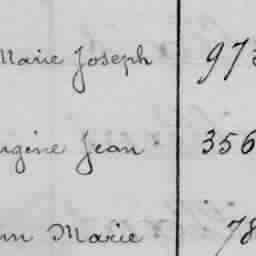 Marie Joseph 973
ugène Jean 356
nn Marie 78